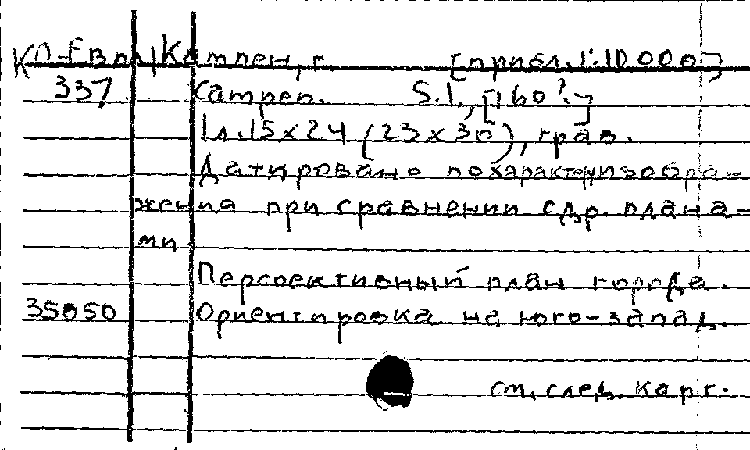 КП-Евпл/Кампен, г. [прибл.1:10 000]
337 Campen. S.l., [160?-]
1л. 15х24 (23х30), грав.
Датировано по характеру изобра-
жения при сравнении с др. плана-
ми
Перспективный план города.
35050 Ориентировка на юго-запад.
см. след. карт.